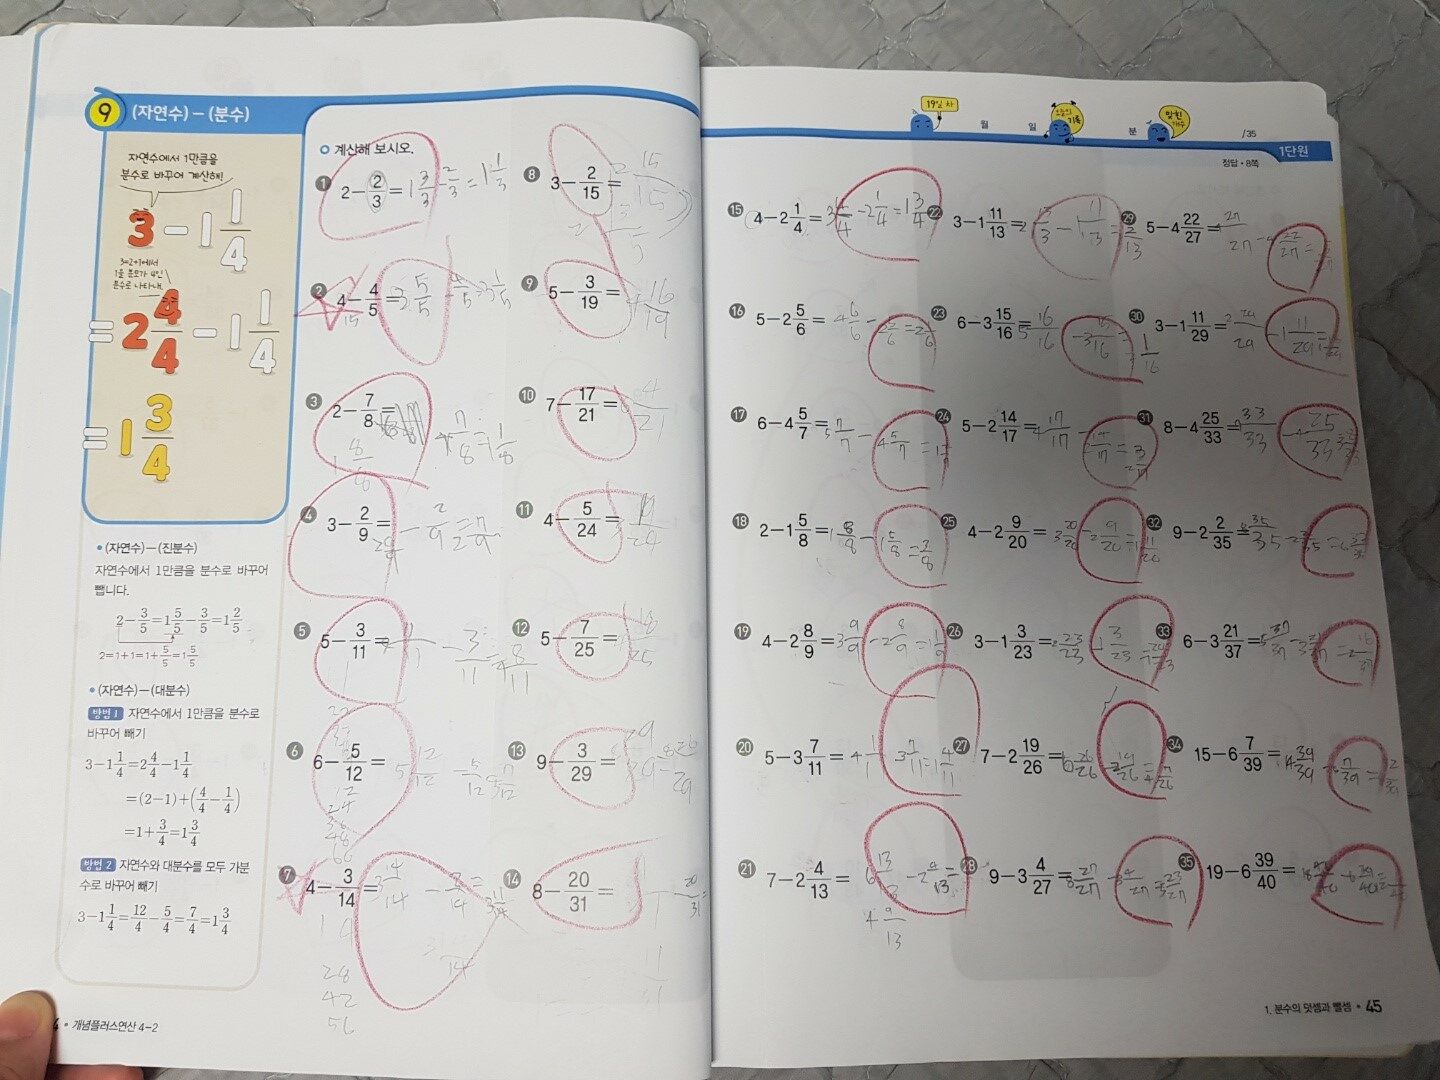 9 (자연수)−(분수)
자연수에서 1만큼을
분수로 바꾸어 계산해!
3−1 1/4
3=2+1에서
1을 분모가 4인
분수로 나타내.
=2 4/4−1 1/4
=1 3/4
• (자연수)−(진분수)
자연수에서 1만큼을 분수로 바꾸어
뺍니다.
2−3/5=1 5/5−3/5=1 2/5
2=1+1=1+5/5=1 5/5
• (자연수)−(대분수)
방법 1 자연수에서 1만큼을 분수로
바꾸어 빼기
3−1 1/4=2 4/4−1 1/4
=(2−1)+(4/4−1/4)
=1+3/4=1 3/4
방법 2 자연수와 대분수를 모두 가분
수로 바꾸어 빼기
3−1 1/4=12/4−5/4=7/4=1 3/4
계산해 보시오.
1 2−2/3=1 3/3−2/3=1 1/3
2 4−4/5=3 5/5−4/5=3 1/5
15
3 2−7/8=
1 8/8−7/8=1 1/8
4 3−2/9=
−2/9=2 7/9
5 5−3/11=
−3/11=4 8/11
6 6−5/12=5 12/12−5/12=5 7/12
12
24
36
48
7 4−3/14=
14
28
42
56
8 3−2/15=2 15/15
9 5−3/19=4 16/19
10 7−17/21=6 4/21
11 4−5/24=
12 5−7/25=4 18/25
13 9−3/29=
8 26/29
14 8−20/31=
20/31=
11/31
• 개념플러스연산 4-2
19일 차
월 일
오늘의 기록
분
맞힌 개수
/35
1단원
정답 • 8쪽
15 4−2 1/4=3 4/4−2 1/4=1 3/4
16 5−2 5/6=4 6/6−2 5/6=2 1/6
17 6−4 5/7=5 7/7−4 5/7=1
18 2−1 5/8=1 8/8−1 5/8=3/8
19 4−2 8/9=3 9/9−2 8/9=1 1/9
20 5−3 7/11=4−3 7/11=1 4/11
21 7−2 4/13=
4 9/13
22 3−1 11/13=
23 6−3 15/16=5 16/16−3 15/16=2 1/16
24 5−2 14/17=4 17/17−2 14/17=2 3/17
25 4−2 9/20=3 20/20−2 9/20=1 11/20
26 3−1 3/23=2 23/23−1 3/23=1 20/23
27 7−2 19/26=6 26/26−2 19/26=4 7/26
28 9−3 4/27=8 27/27−3 4/27=5 23/27
29 5−4 22/27=
30 3−1 11/29=2 29/29−1 11/29=1
31 8−4 25/33=7 33/33−4 25/33
32 9−2 2/35=8 35/35
33 6−3 21/37=5 37/37−3 21/37=2 16/37
34 15−6 7/39=14 39/39−6 7/39=
35 19−6 39/40=
1. 분수의 덧셈과 뺄셈 • 45